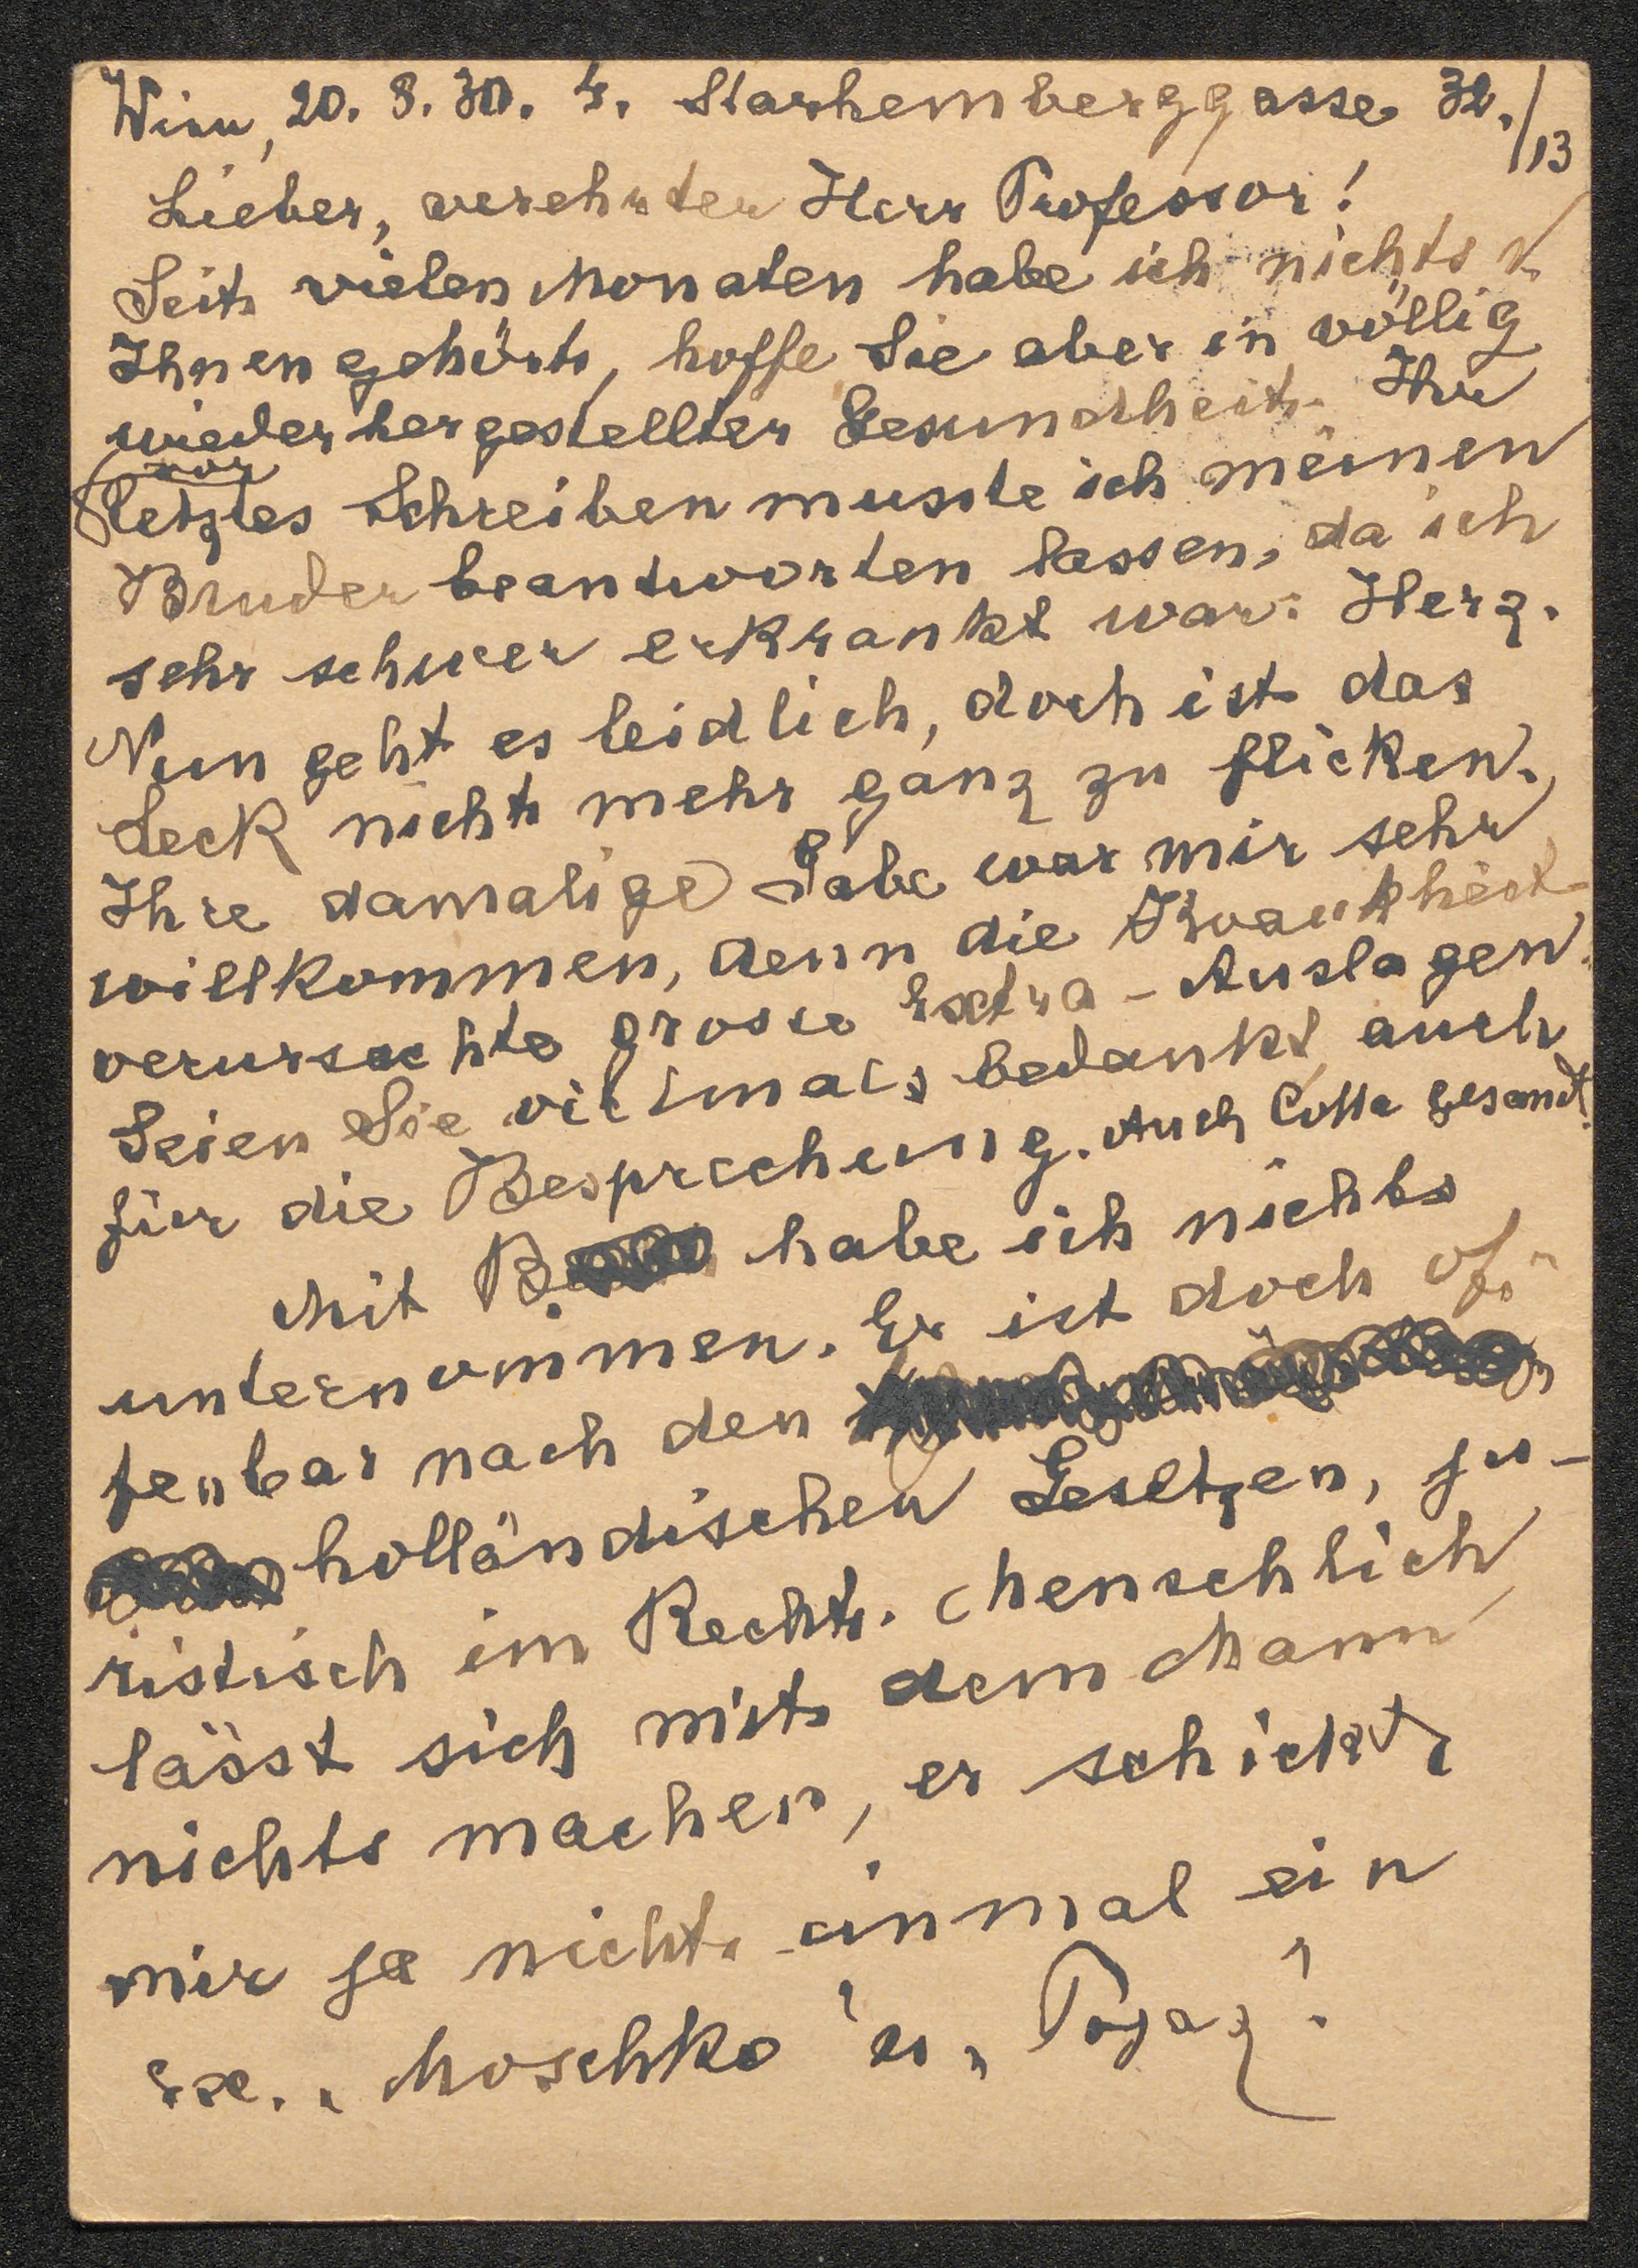 Wien, 20. 8. 30. 4. Starhemberggasse 32./13
Lieber, verehrter Herr Professor!
Seit vielen Monaten habe ich nichts v.
Ihnen gehört, hoffe Sie aber in völlig
wiederhergestellter Gesundheit. Ihr
vor
letztes Schreiben musste ich meinen
Bruder beantworten lassen, da ich
sehr schwer erkrankt war: Herz.
Nun geht es leidlich, doch ist das
Leck nicht mehr ganz zu flicken.
Ihre damalige Gabe war mir sehr
willkommen, denn die Krankheit
verursachte grosse Extra-Auslagen.
Seien Sie vielmals bedankt, auch
für die Besprechung. Auch Cotta gesandt.
Mit B. habe ich nichts
unternommen. Er ist doch of-
fenbar nach den
holländischen Gesetzen, ju-
ristisch im Recht. Menschlich
lässt sich mit dem Mann
nichts machen, er schickt
mir ja nicht einmal ein
Ex. „Moschko" u. „Pojaz".